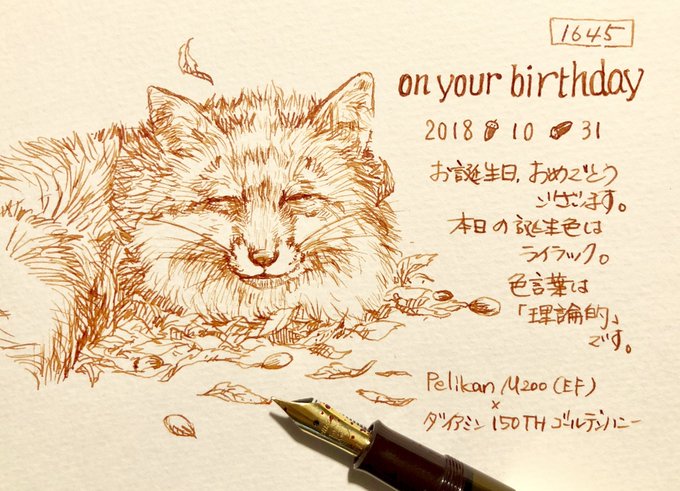 1645
on your birthday
2018 10 31
お誕生日、おめでとう
ございます。
本日の誕生色は
ライラック。
色言葉は
「理論的」
です。
Pelikan M200 (EF)
×
ダイアミン 150TH ゴールデンハニー